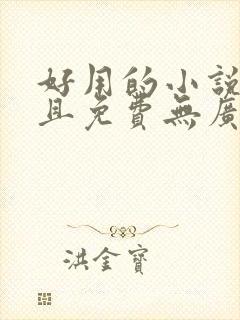 好用的小說
且免費無廣
洪金寶